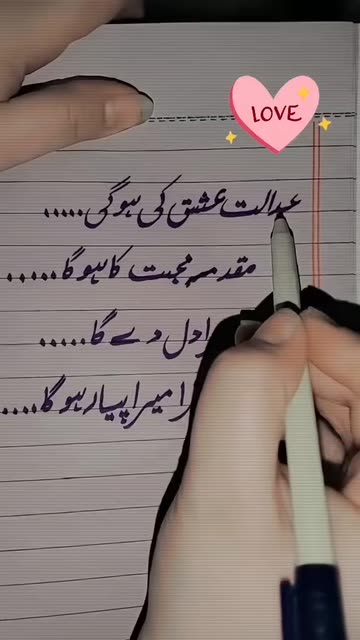 LOVE
عدالت عشق کی ہوگی.....
مقدمہ محبت کا ہوگا.....
دل دے گا.....
میرا پیار ہوگا....